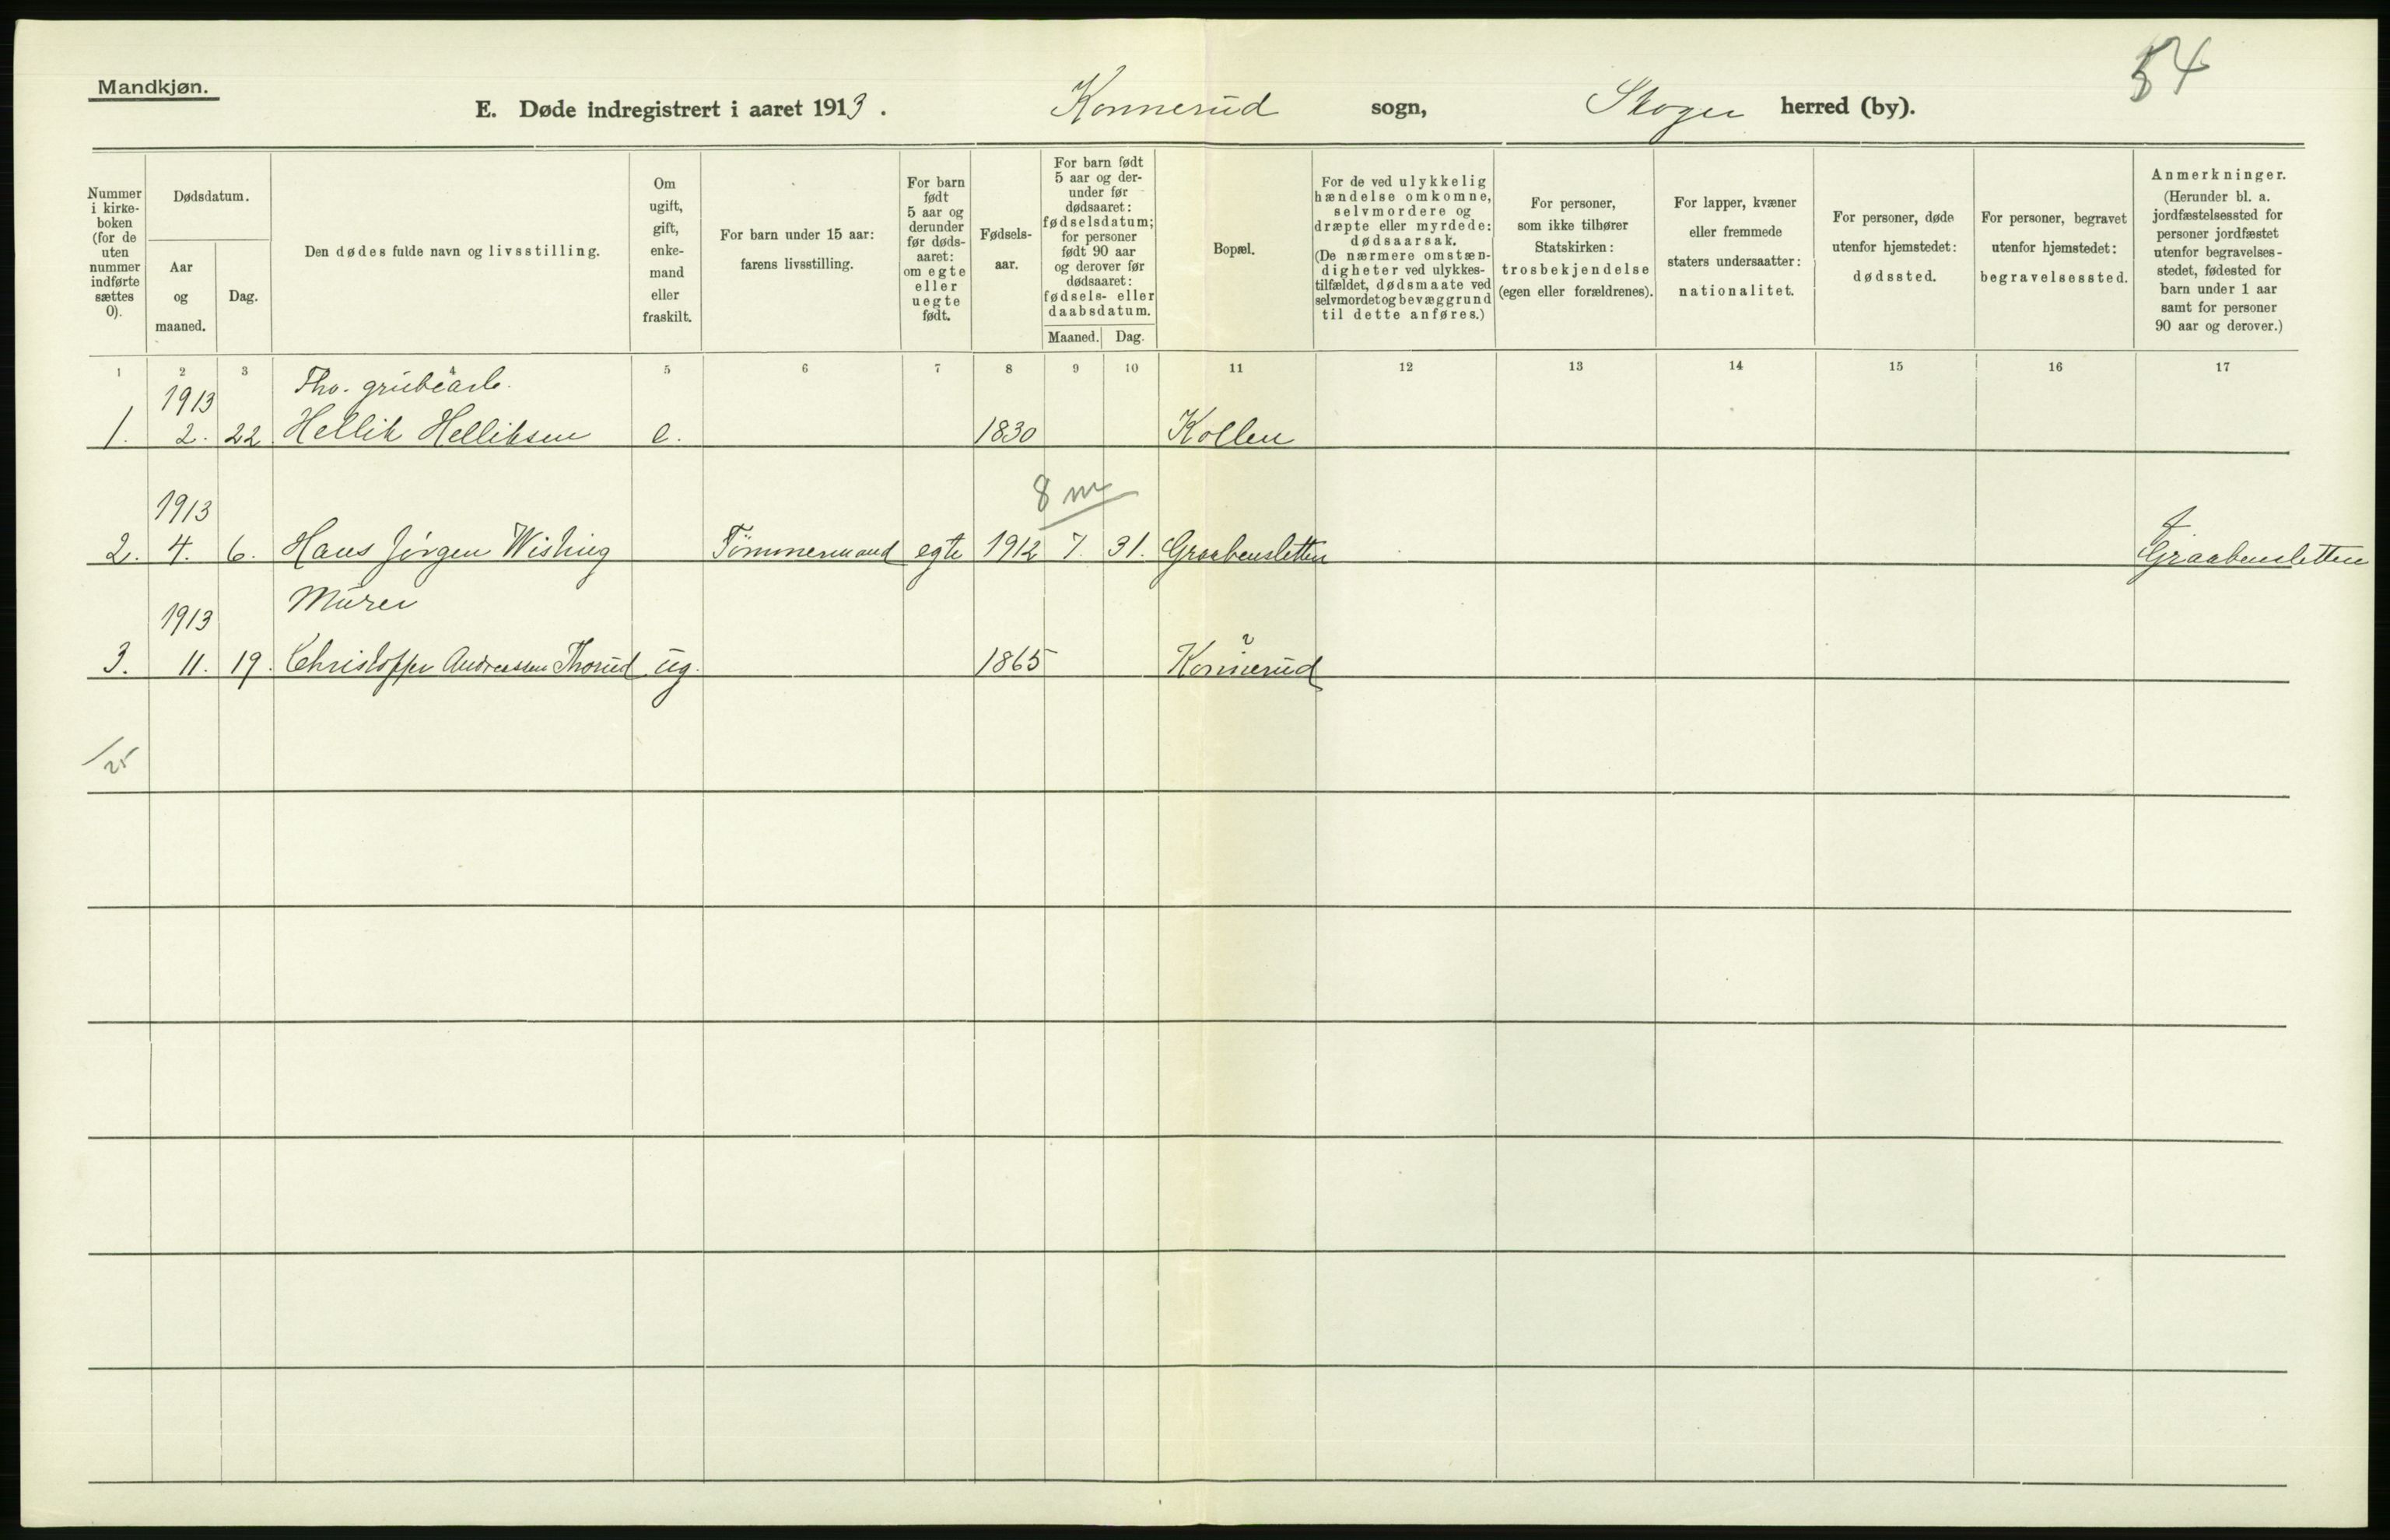 Mandkjøn.
54
E. Døde indregistrert i aaret 1913. Konnerud sogn, Skoger herred (by).
Nummer i kirke-boken (for de uten nummer indførte sættes 0).
Dødsdatum.
Aar og maaned.
Dag.
Den dødes fulde navn og livsstilling.
Om ugift, gift, enke-mand eller fraskilt.
For barn under 15 aar: farens livsstilling.
For barn født 5 aar og derunder før døds-aaret: om egte eller uegte født.
Fødsels-aar.
For barn født 5 aar og der-under før dødsaaret: fødselsdatum; for personer født 90 aar og derover før dødsaaret: fødsels- eller daabsdatum.
Maaned. Dag.
Bopæl.
For de ved ulykkelig hændelse omkomne, selvmordere og dræpte eller myrdede: dødsaarsak. (De nærmere omstæn-digheter ved ulykkes-tilfældet, dødsmaate ved selvmord et og bevæggrund til dette anføres.)
For personer, som ikke tilhører Statskirken: trosbekjendelse (egen eller forældrenes).
For lapper, kvæner eller fremmede staters undersaatter: nationalitet.
For personer, døde utenfor hjemstedet: dødssted.
For personer, begravet utenfor hjemstedet: begravelsessted.
Anmerkninger. (Herunder bl. a. jordfæstelsessted for personer jordfæstet utenfor begravelses-stedet, fødested for barn under 1 aar samt for personer 90 aar og derover.)
1 2 3 4 5 6 7 8 9 10 11 12 13 14 15 16 17
1913 Fhv. grubearb.
1. 2. 22 Hellik Helliksen e. 1830 Kollen
8 m
1913
2. 4. 6. Hans Jørgen Wisting Tömmermand egte 1912 7. 31. Graabensletten Graabensletten
1913 Murer
3. 11. 19. Christoffer Andreassen Thorud ug. 1865 Konnerud
/25